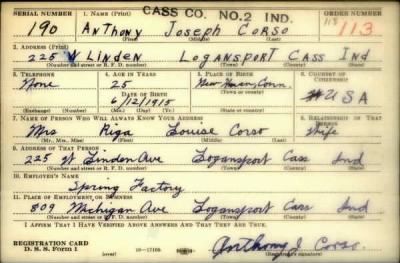 CASS CO. NO.2 IND.
SERIAL NUMBER 1. NAME (Print) ORDER NUMBER
190 Anthony Joseph Corso 113
(First) (Middle) (Last)
2. ADDRESS (Print)
225 W Linden Logansport Cass Ind
(Number and street or R. F. D. number) (Town) (County) (State)
3. TELEPHONE 4. AGE IN YEARS 5. PLACE OF BIRTH 6. COUNTRY OF CITIZENSHIP
None 25 New Haven, Conn. USA
DATE OF BIRTH
6/12/1915
(Exchange) (Number) (Mo.) (Day) (Yr.) (State or country)
7. NAME OF PERSON WHO WILL ALWAYS KNOW YOUR ADDRESS 8. RELATIONSHIP OF THAT PERSON
Mrs Louise Corso Wife
(Mr., Mrs., Miss) (First) (Middle) (Last)
9. ADDRESS OF THAT PERSON
225 W Linden Ave Logansport Cass Ind
(Number and street or R. F. D. number) (Town) (County) (State)
10. EMPLOYER'S NAME
Spring Factory
11. PLACE OF EMPLOYMENT OR BUSINESS
809 Michigan Ave Logansport Cass Ind
(Number and street or R. F. D. number) (Town) (County) (State)
I AFFIRM THAT I HAVE VERIFIED ABOVE ANSWERS AND THAT THEY ARE TRUE.
REGISTRATION CARD
D. S. S. Form 1 (over) 16—17105 Anthony J Corso
(Registrant's signature)